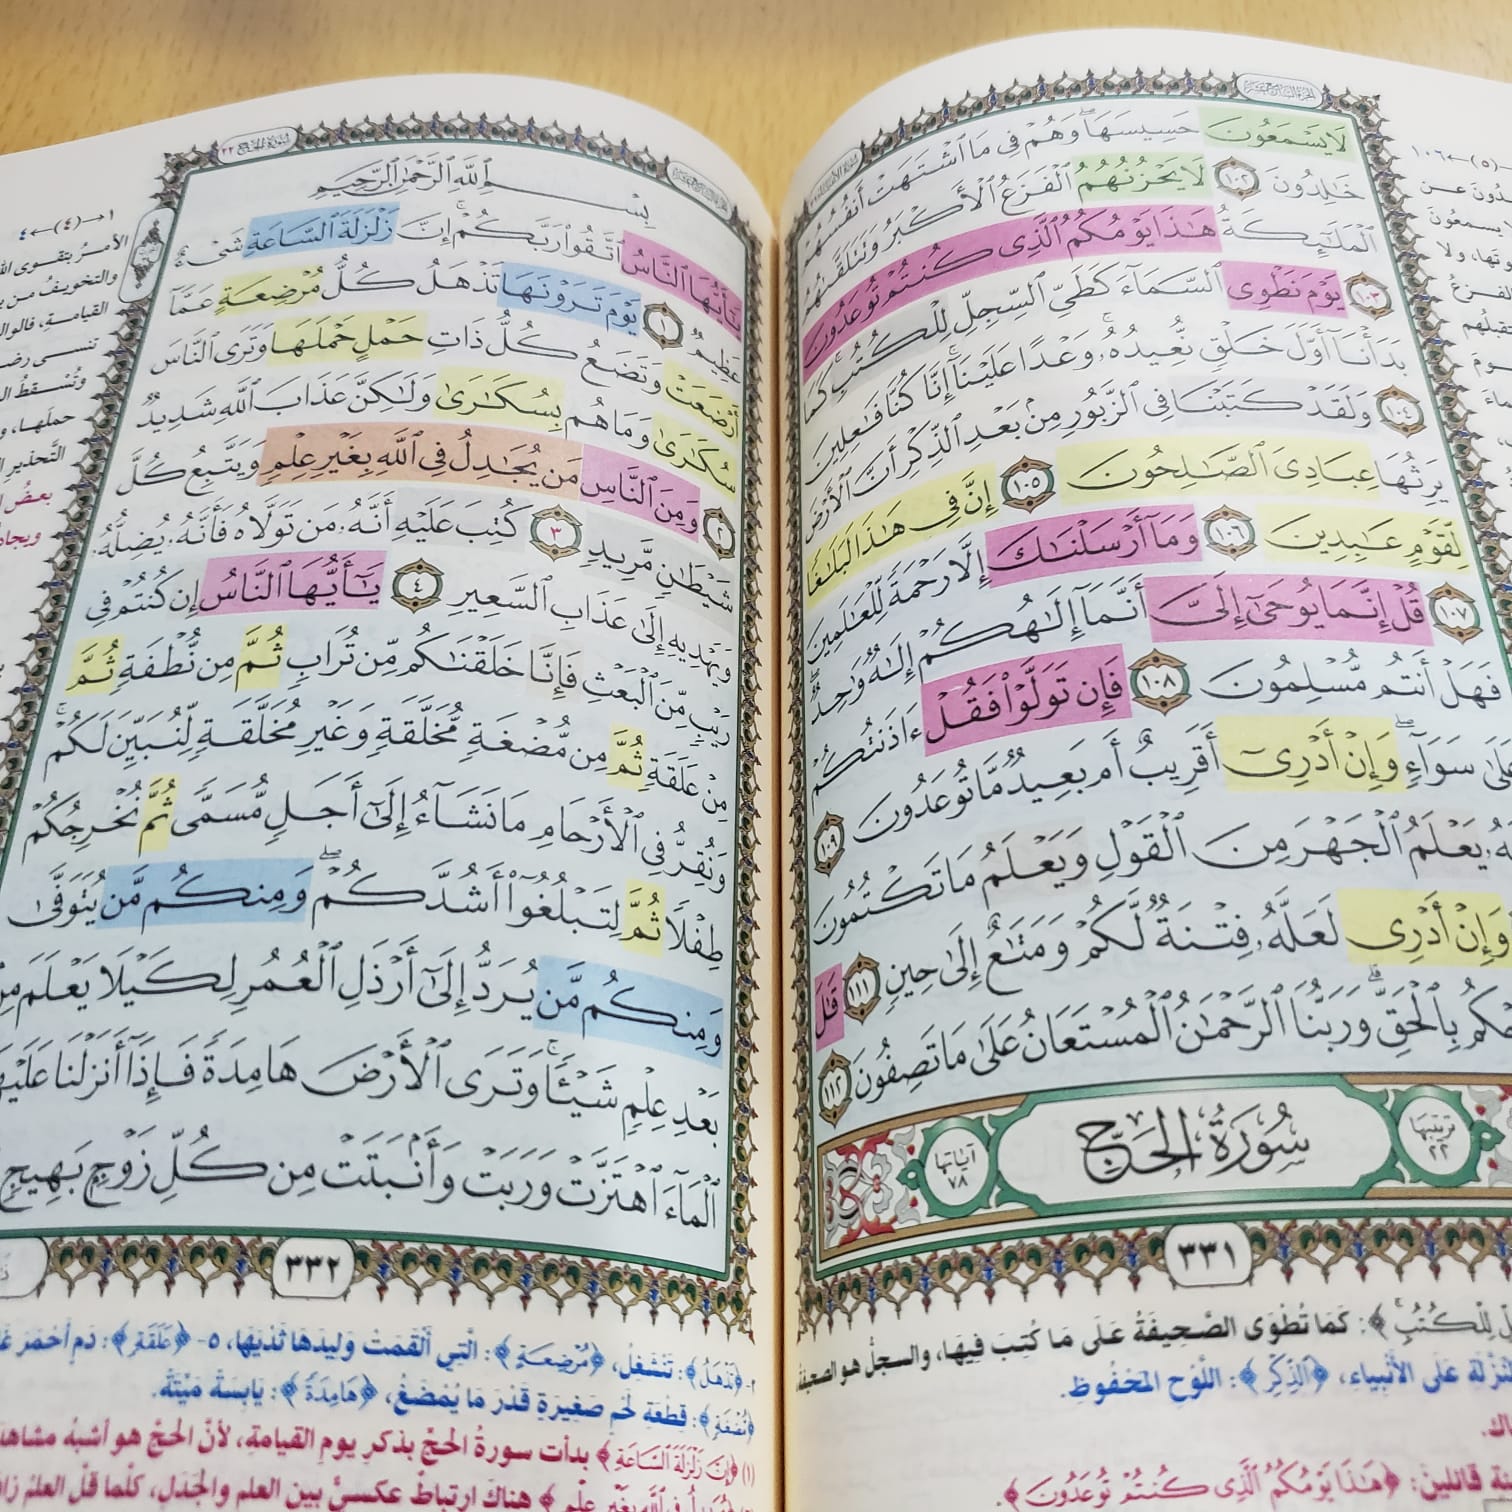 لَا يَسْمَعُونَ حَسِيسَهَا ۖ وَهُمْ فِي مَا ٱشْتَهَتْ أَنفُسُهُمْ
خَٰلِدُونَ ١٠٢ لَا يَحْزُنُهُمُ ٱلْفَزَعُ ٱلْأَكْبَرُ وَتَتَلَقَّىٰهُمُ
ٱلْمَلَٰٓئِكَةُ هَٰذَا يَوْمُكُمُ ٱلَّذِي كُنتُمْ تُوعَدُونَ
١٠٣ يَوْمَ نَطْوِي ٱلسَّمَآءَ كَطَيِّ ٱلسِّجِلِّ لِلْكُتُبِ ۚ كَمَا
بَدَأْنَآ أَوَّلَ خَلْقٍ نُّعِيدُهُۥ ۚ وَعْدًا عَلَيْنَآ ۚ إِنَّا كُنَّا فَٰعِلِينَ
١٠٤ وَلَقَدْ كَتَبْنَا فِي ٱلزَّبُورِ مِنۢ بَعْدِ ٱلذِّكْرِ أَنَّ ٱلْأَرْضَ
يَرِثُهَا عِبَادِيَ ٱلصَّٰلِحُونَ ١٠٥ إِنَّ فِي هَٰذَا لَبَلَٰغًا
لِّقَوْمٍ عَٰبِدِينَ ١٠٦ وَمَآ أَرْسَلْنَٰكَ إِلَّا رَحْمَةً لِّلْعَٰلَمِينَ
١٠٧ قُلْ إِنَّمَا يُوحَىٰٓ إِلَيَّ أَنَّمَآ إِلَٰهُكُمْ إِلَٰهٌ وَٰحِدٌ ۖ
فَهَلْ أَنتُم مُّسْلِمُونَ ١٠٨ فَإِن تَوَلَّوْا۟ فَقُلْ ءَاذَنتُكُمْ
عَلَىٰ سَوَآءٍ ۖ وَإِنْ أَدْرِيٓ أَقَرِيبٌ أَم بَعِيدٌ مَّا تُوعَدُونَ
١٠٩ يَعْلَمُ ٱلْجَهْرَ مِنَ ٱلْقَوْلِ وَيَعْلَمُ مَا تَكْتُمُونَ
وَإِنْ أَدْرِي لَعَلَّهُۥ فِتْنَةٌ لَّكُمْ وَمَتَٰعٌ إِلَىٰ حِينٍ ١١١ قَٰلَ
بِٱلْحَقِّ ۗ وَرَبُّنَا ٱلرَّحْمَٰنُ ٱلْمُسْتَعَانُ عَلَىٰ مَا تَصِفُونَ ١١٢
ترتيبها ٢٢ سُورَةُ الحَجِّ آياتها ٧٨
٣٣١
لِلْكُتُبِ﴾: كَمَا تُطْوَى الصَّحِيفَةُ عَلَى مَا كُتِبَ فِيهَا، والسجلُّ هو الصحيفة
عَلى الأنْبِياءِ، ﴿الذِّكْرِ﴾: اللَّوْحِ المَحْفُوظِ.
قائلينَ: ﴿هَٰذَا يَوْمُكُمُ ٱلَّذِي كُنتُمْ تُوعَدُونَ﴾.
سُورَةُ الحَجِّ ٢٢
بِسْمِ ٱللَّهِ ٱلرَّحْمَٰنِ ٱلرَّحِيمِ
يَٰٓأَيُّهَا ٱلنَّاسُ ٱتَّقُوا۟ رَبَّكُمْ ۚ إِنَّ زَلْزَلَةَ ٱلسَّاعَةِ شَيْءٌ
عَظِيمٌ ١ يَوْمَ تَرَوْنَهَا تَذْهَلُ كُلُّ مُرْضِعَةٍ عَمَّآ
أَرْضَعَتْ وَتَضَعُ كُلُّ ذَاتِ حَمْلٍ حَمْلَهَا وَتَرَى ٱلنَّاسَ
سُكَٰرَىٰ وَمَا هُم بِسُكَٰرَىٰ وَلَٰكِنَّ عَذَابَ ٱللَّهِ شَدِيدٌ
٢ وَمِنَ ٱلنَّاسِ مَن يُجَٰدِلُ فِي ٱللَّهِ بِغَيْرِ عِلْمٍ وَيَتَّبِعُ كُلَّ
شَيْطَٰنٍ مَّرِيدٍ ٣ كُتِبَ عَلَيْهِ أَنَّهُۥ مَن تَوَلَّاهُ فَأَنَّهُۥ يُضِلُّهُۥ
وَيَهْدِيهِ إِلَىٰ عَذَابِ ٱلسَّعِيرِ ٤ يَٰٓأَيُّهَا ٱلنَّاسُ إِن كُنتُمْ فِي
رَيْبٍ مِّنَ ٱلْبَعْثِ فَإِنَّا خَلَقْنَٰكُم مِّن تُرَابٍ ثُمَّ مِن نُّطْفَةٍ ثُمَّ
مِنْ عَلَقَةٍ ثُمَّ مِن مُّضْغَةٍ مُّخَلَّقَةٍ وَغَيْرِ مُخَلَّقَةٍ لِّنُبَيِّنَ لَكُمْ ۚ
وَنُقِرُّ فِي ٱلْأَرْحَامِ مَا نَشَآءُ إِلَىٰٓ أَجَلٍ مُّسَمًّى ثُمَّ نُخْرِجُكُمْ
طِفْلًا ثُمَّ لِتَبْلُغُوٓا۟ أَشُدَّكُمْ ۖ وَمِنكُم مَّن يُتَوَفَّىٰ
وَمِنكُم مَّن يُرَدُّ إِلَىٰٓ أَرْذَلِ ٱلْعُمُرِ لِكَيْلَا يَعْلَمَ مِنۢ
بَعْدِ عِلْمٍ شَيْـًٔا ۚ وَتَرَى ٱلْأَرْضَ هَامِدَةً فَإِذَآ أَنزَلْنَا عَلَيْهَا
ٱلْمَآءَ ٱهْتَزَّتْ وَرَبَتْ وَأَنۢبَتَتْ مِن كُلِّ زَوْجٍۭ بَهِيجٍ
٣٣٢
٢- ﴿تَذْهَلُ﴾: تَنْشَغِلُ، ﴿مُرْضِعَةٍ﴾: الَّتِي أَلْقَمَتْ وَلِيدَهَا ثَدْيَهَا، ٥- ﴿عَلَقَةٍ﴾: دَمٍ أَحْمَرَ
﴿مُضْغَةٍ﴾: قِطْعَةِ لَحْمٍ صَغِيرَةٍ قَدْرَ مَا يُمْضَغُ، ﴿هَامِدَةً﴾: يَابِسَةً مَيْتَةً.
(١) ﴿إِنَّ زَلْزَلَةَ ٱلسَّاعَةِ﴾ بدأت سورةُ الحجِّ بذكرِ يومِ القيامةِ، لأنَّ الحجَّ هو أشبهُ
فِي ٱللَّهِ بِغَيْرِ عِلْمٍ﴾ هناك ارتباطٌ عكسيٌّ بين العلمِ والجَدَلِ، كلَّما قلَّ العلمُ
١←(٤)→٤
الأمرُ بتقوى
والتخويفُ من
القيامةِ، فالوالـ
تنسى
وتُسقطُ
حملَها،
التَّحذيرُ
بعضُ